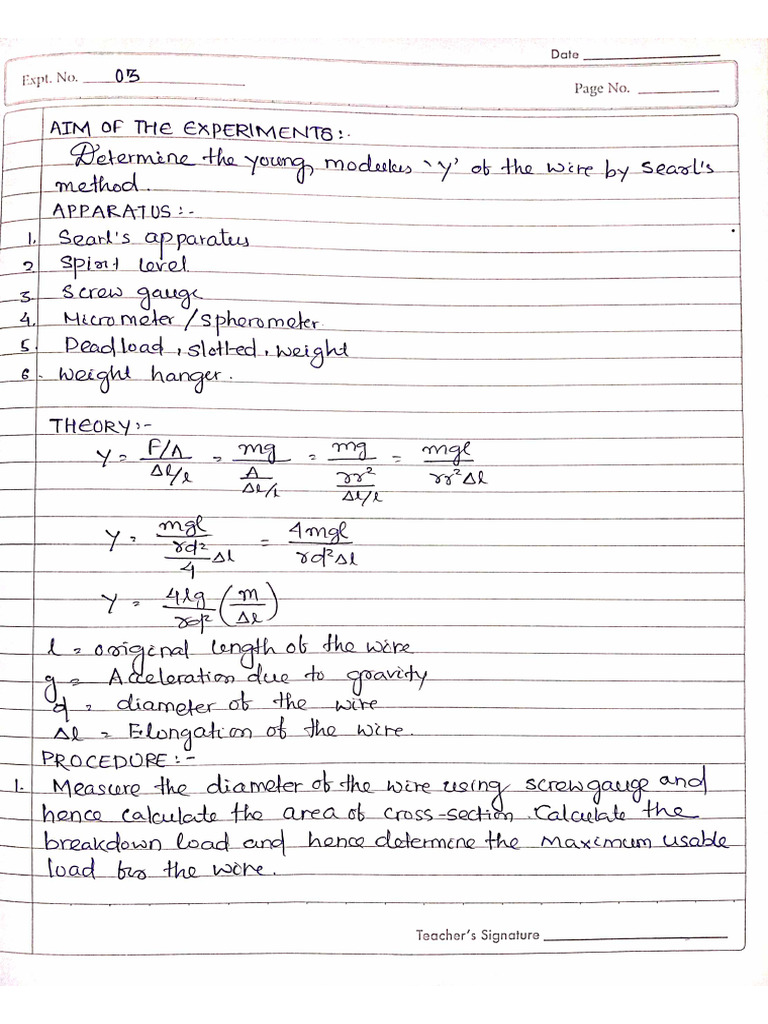 Date
Expt. No. 03
Page No.
AIM OF THE EXPERIMENTS:-
Determine the young modules 'y' of the wire by Searl's
method.
APPARATUS:-
1. Searl's apparatus
2 Spirit level
3 Screw gauge
4. Micrometer/spherometer.
5. Deadload, slotted, weight
6. Weight hanger.
THEORY:-
Y = (F/A)/(Δl/l) = mg/(A/(Δl/l)) = mg/(πr²/(Δl/l)) = mgl/(πr²Δl)
Y = mgl/((πd²/4)Δl) = 4mgl/(πd²Δl)
Y = 4lg/(πd²) (m/Δl)
l = original length of the wire
g = Acceleration due to gravity
d = diameter of the wire
Δl = Elongation of the wire.
PROCEDURE:-
1. Measure the diameter of the wire using screwgauge and
hence calculate the area of cross-section. Calculate the
breakdown load and hence determine the maximum usable
load for the wire.
Teacher's Signature